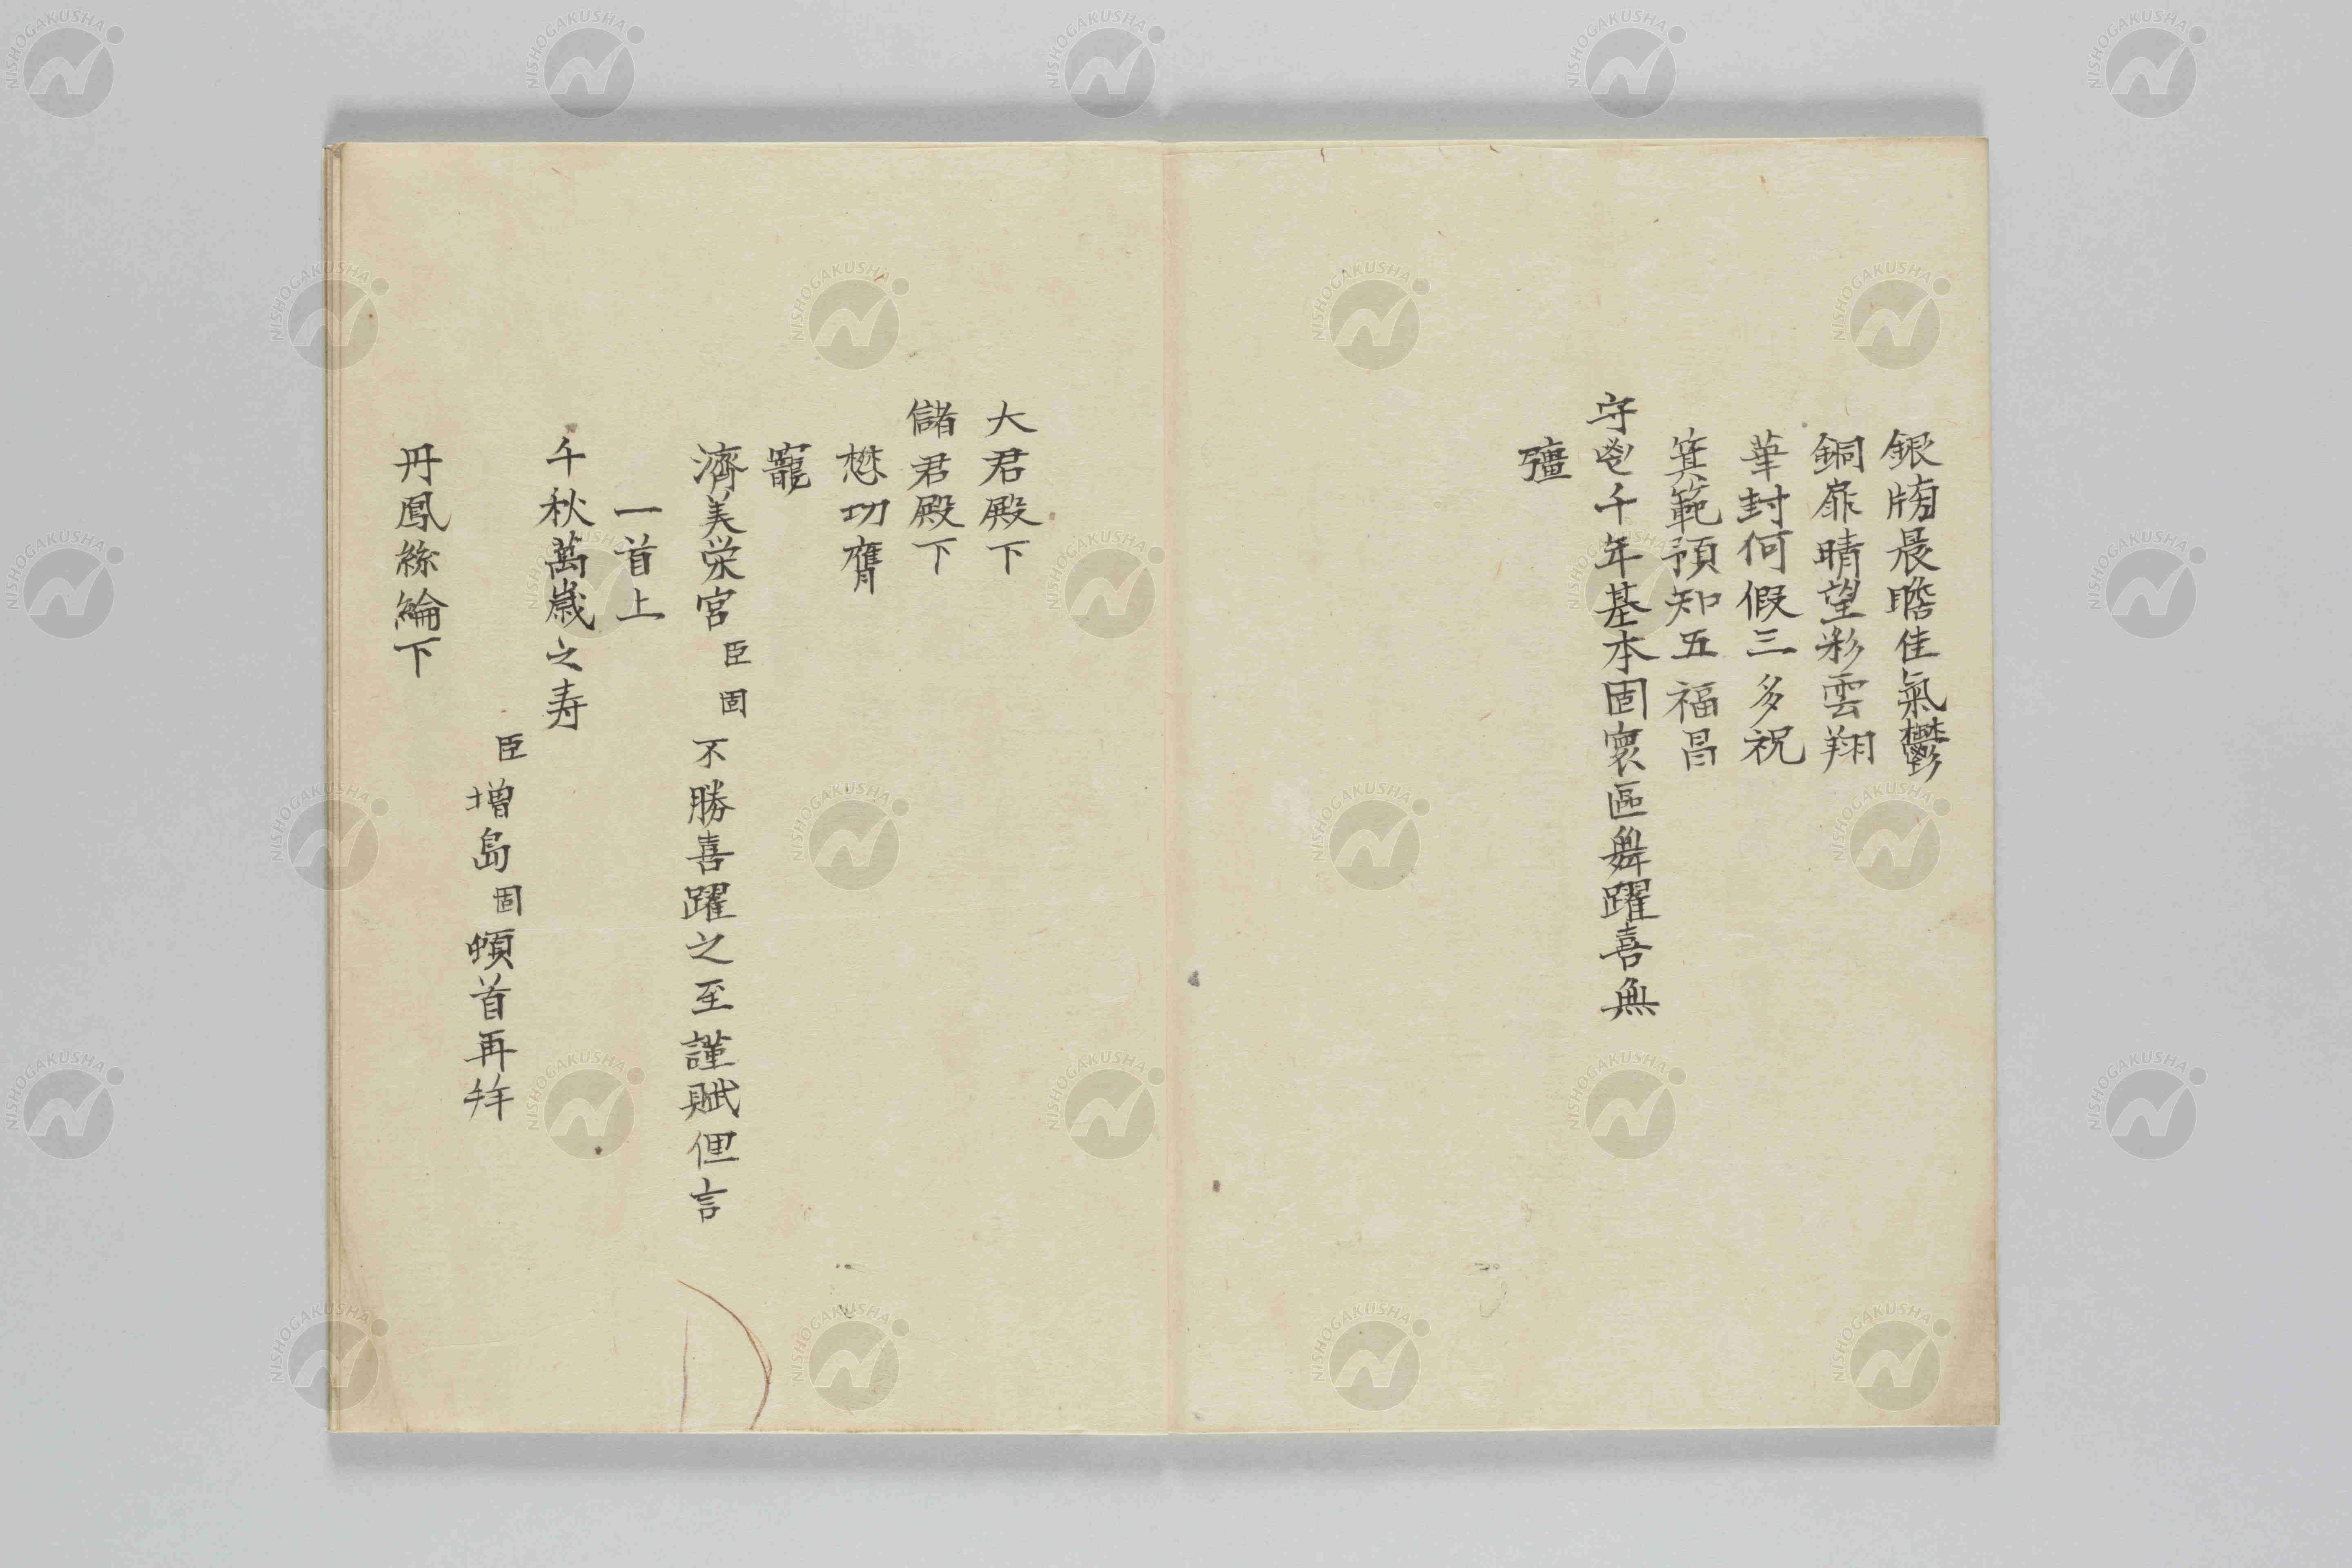 銀牓晨瞻佳氣鬱
銅扉晴望彩雲翔
華封何假三多祝
箕範預知五福昌
守鬯千年基本固寰區舞躍喜無
疆
大君殿下
儲君殿下
懋功膺
寵
濟美栄宮臣固不勝喜躍之至謹賦俚言
一首上
千秋萬歳之寿
臣増島固頓首再拜
丹鳳綸下